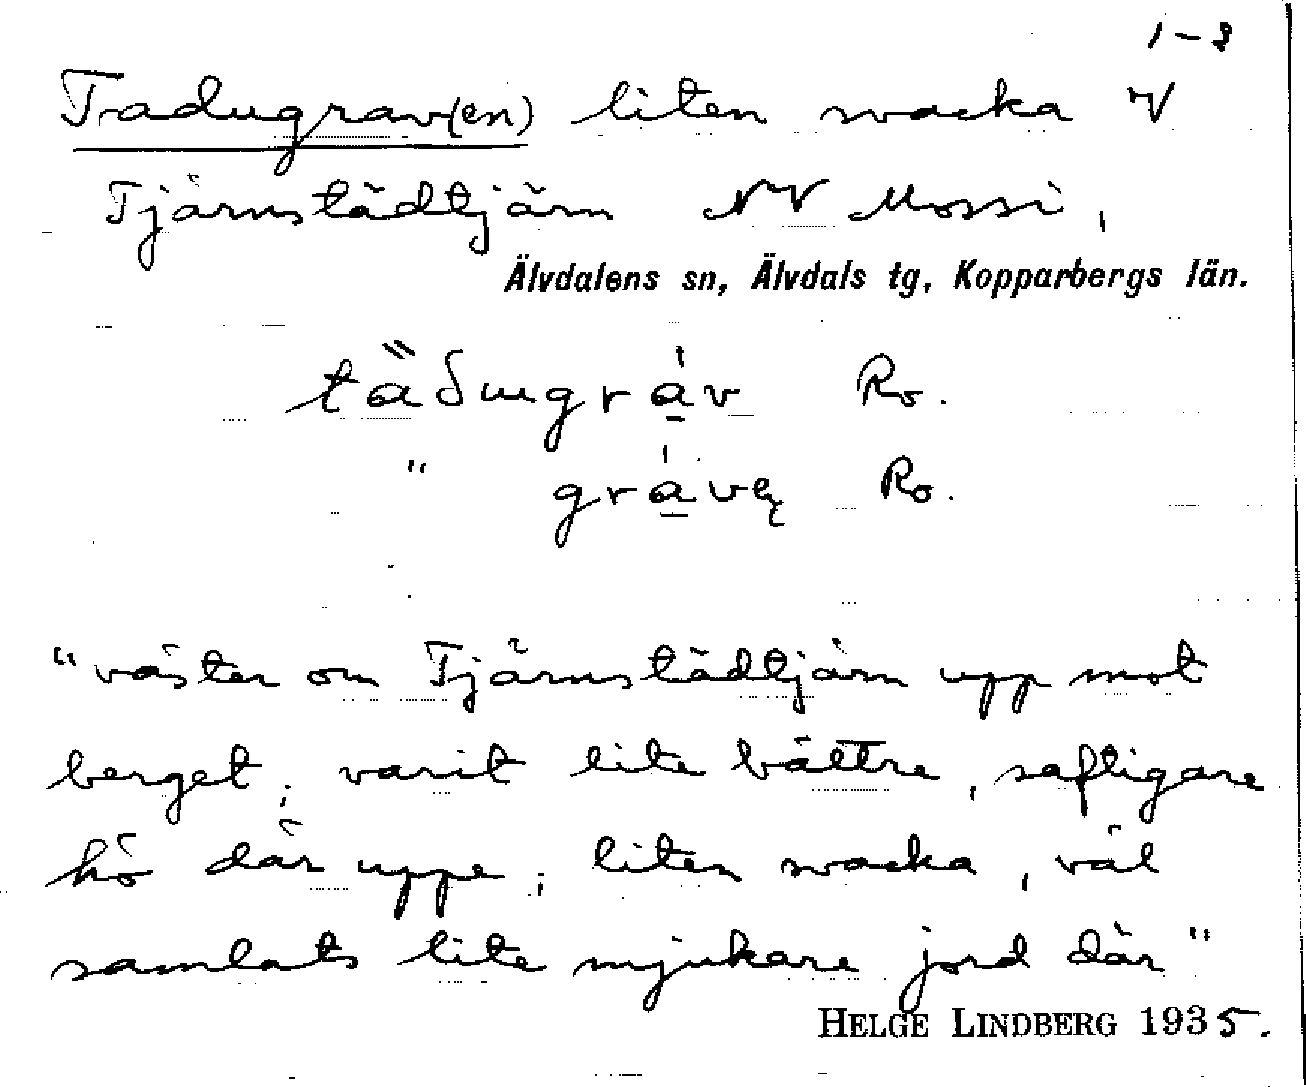 1-3
Tadugrav(en) liten svacka V
Tjärnstädtjärn NV Mossi,
Älvdalens sn, Älvdals tg, Kopparbergs län.
Ro.
" Ro.
"väster om Tjärnstädtjärn upp mot
berget; varit lite bättre, saftigare
hö där uppe; liten svacka, väl
samlats lite mjukare jord där"
HELGE LINDBERG 1935.